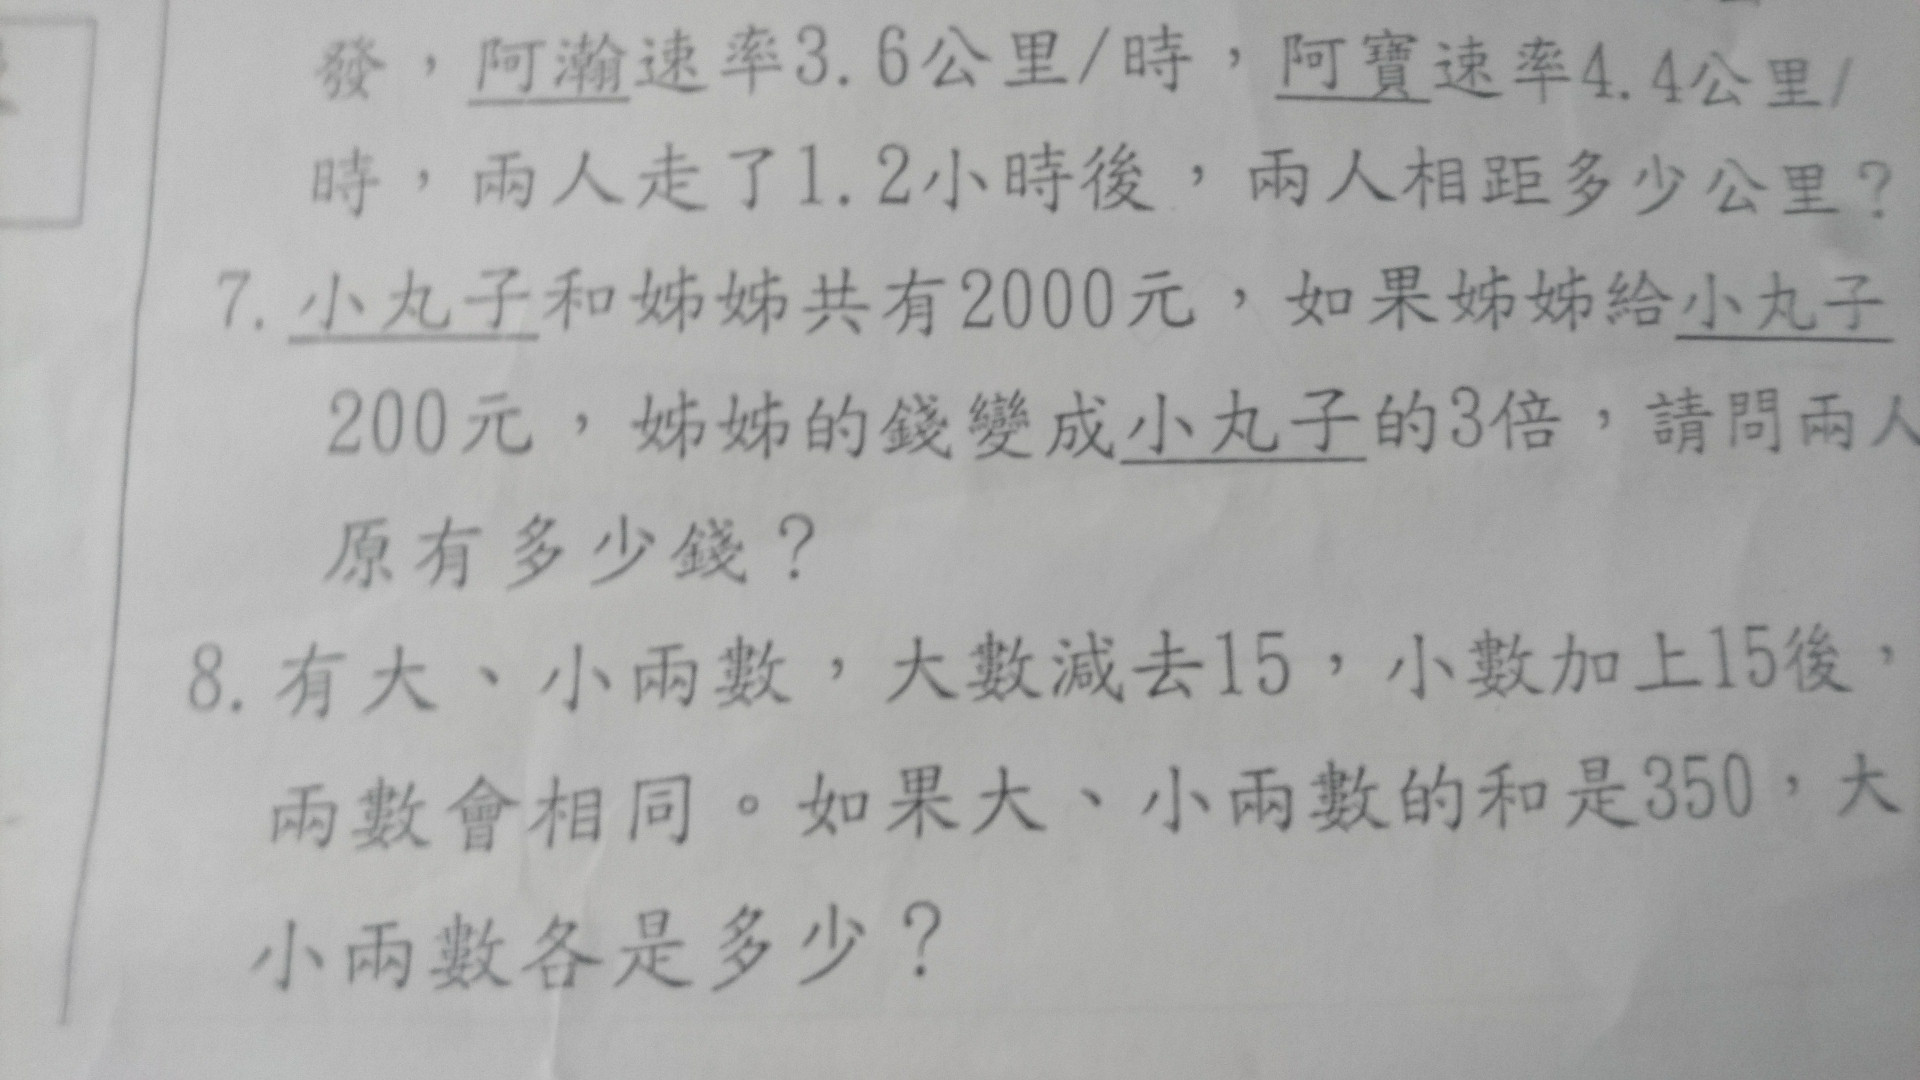 發，阿瀚速率3.6公里/時，阿寶速率4.4公里/
時，兩人走了1.2小時後，兩人相距多少公里？
7. 小丸子和姊姊共有2000元，如果姊姊給小丸子
200元，姊姊的錢變成小丸子的3倍，請問兩人
原有多少錢？
8. 有大、小兩數，大數減去15，小數加上15後，
兩數會相同。如果大、小兩數的和是350，大
小兩數各是多少？